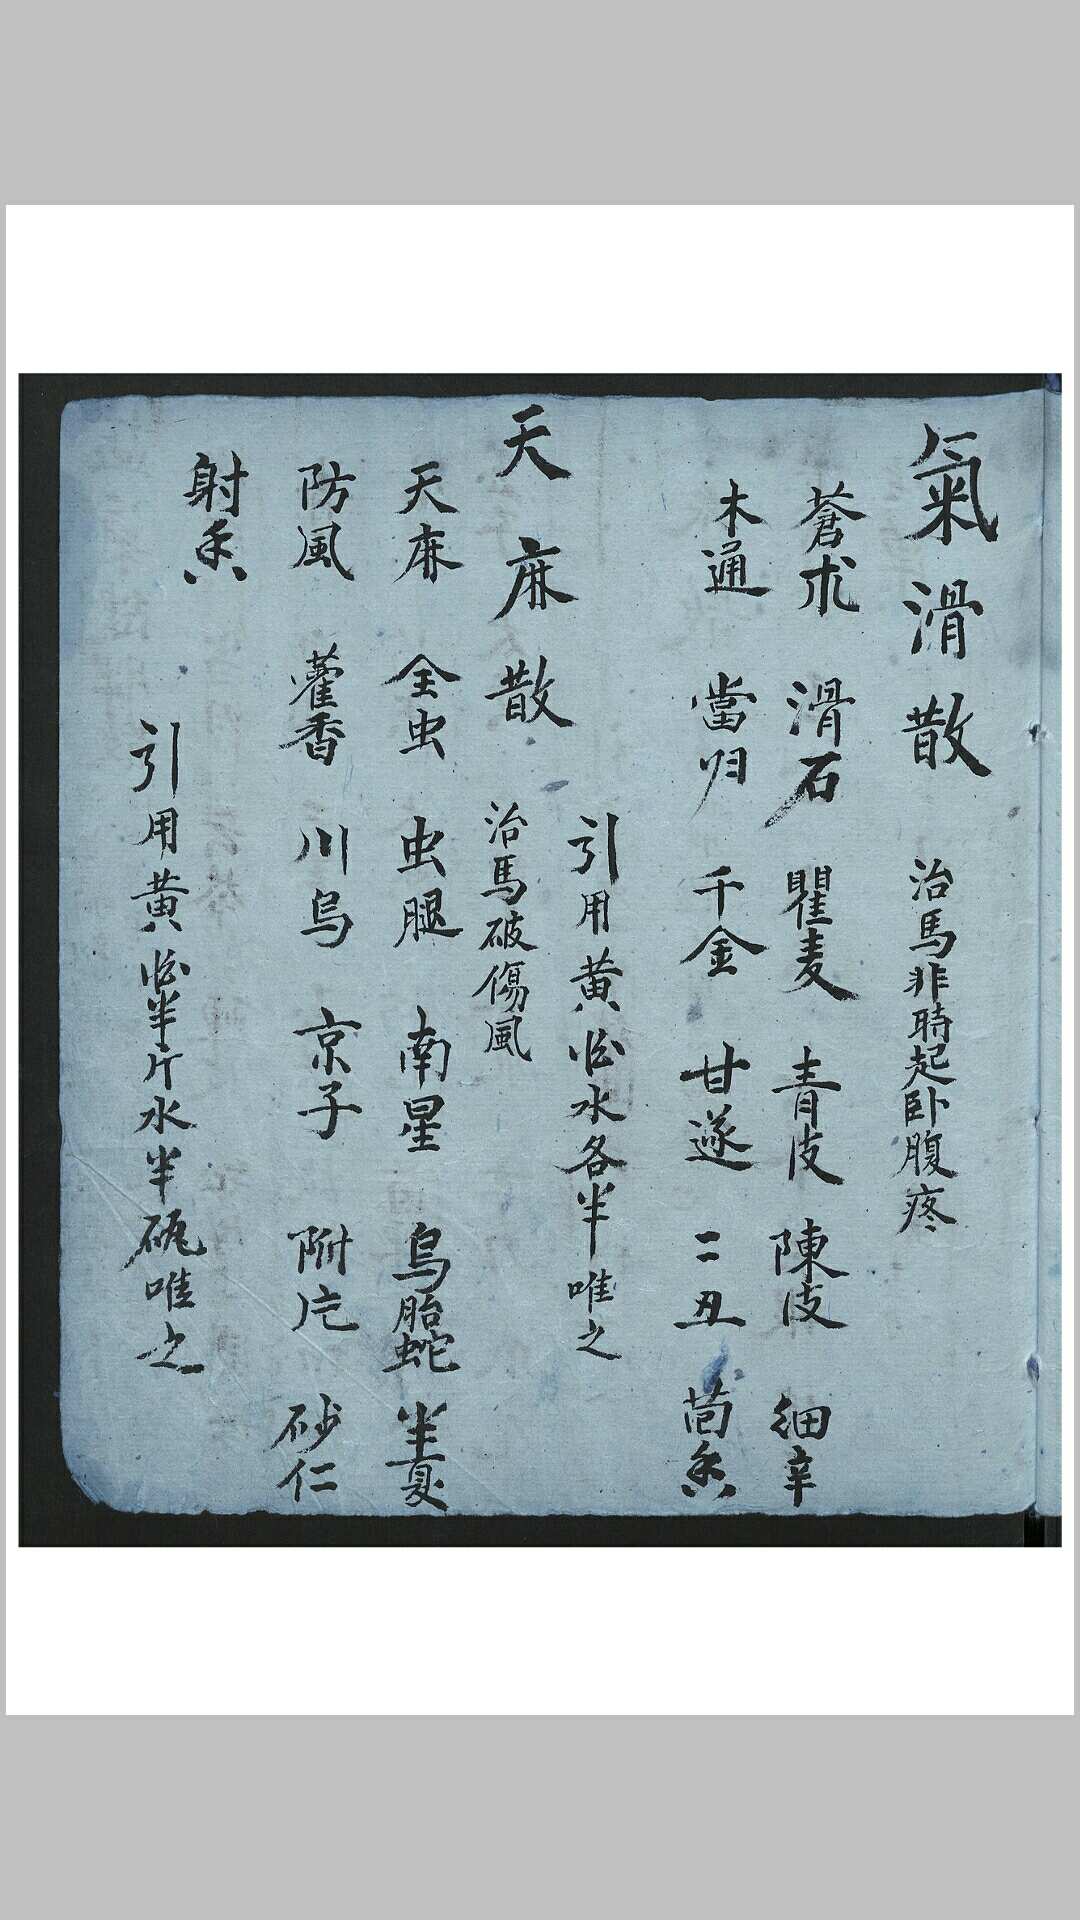 氣滑散 治馬非時起卧腹疼
蒼朮 滑石 瞿麦 青皮 陳皮 细辛
木通 當归 千金 甘遂 二丑 茴香
引用黄酒水各半唯之
天麻散 治馬破傷風
天麻 全虫 虫腿 南星 烏胎蛇 半夏
防風 藿香 川烏 京子 附片 砂仁
射香
引用黄酒半斤水半碗唯之